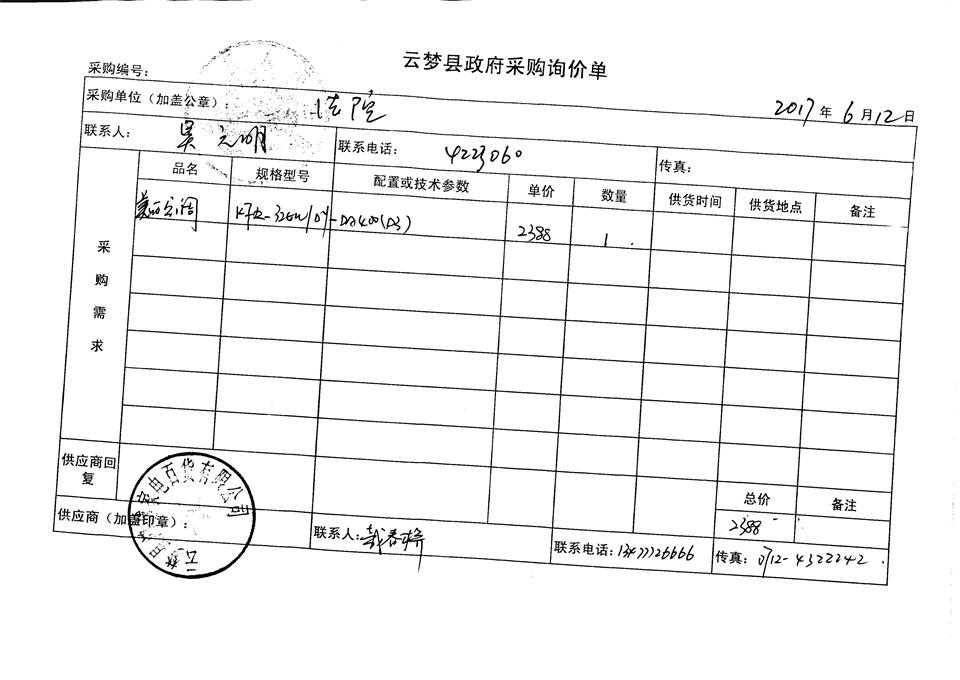 云梦县政府采购询价单
采购编号：
采购单位（加盖公章）： 法院 2017年6月12日
联系人： 吴元明 联系电话： 4223060 传真：
采购需求
品名 规格型号 配置或技术参数 单价 数量 供货时间 供货地点 备注
美的空调 2388 1
供应商回复
总价 备注
2388
供应商（加盖印章）： 联系人： 联系电话：13477726666 传真：0712-4322242
家电百货有限公司
云梦县